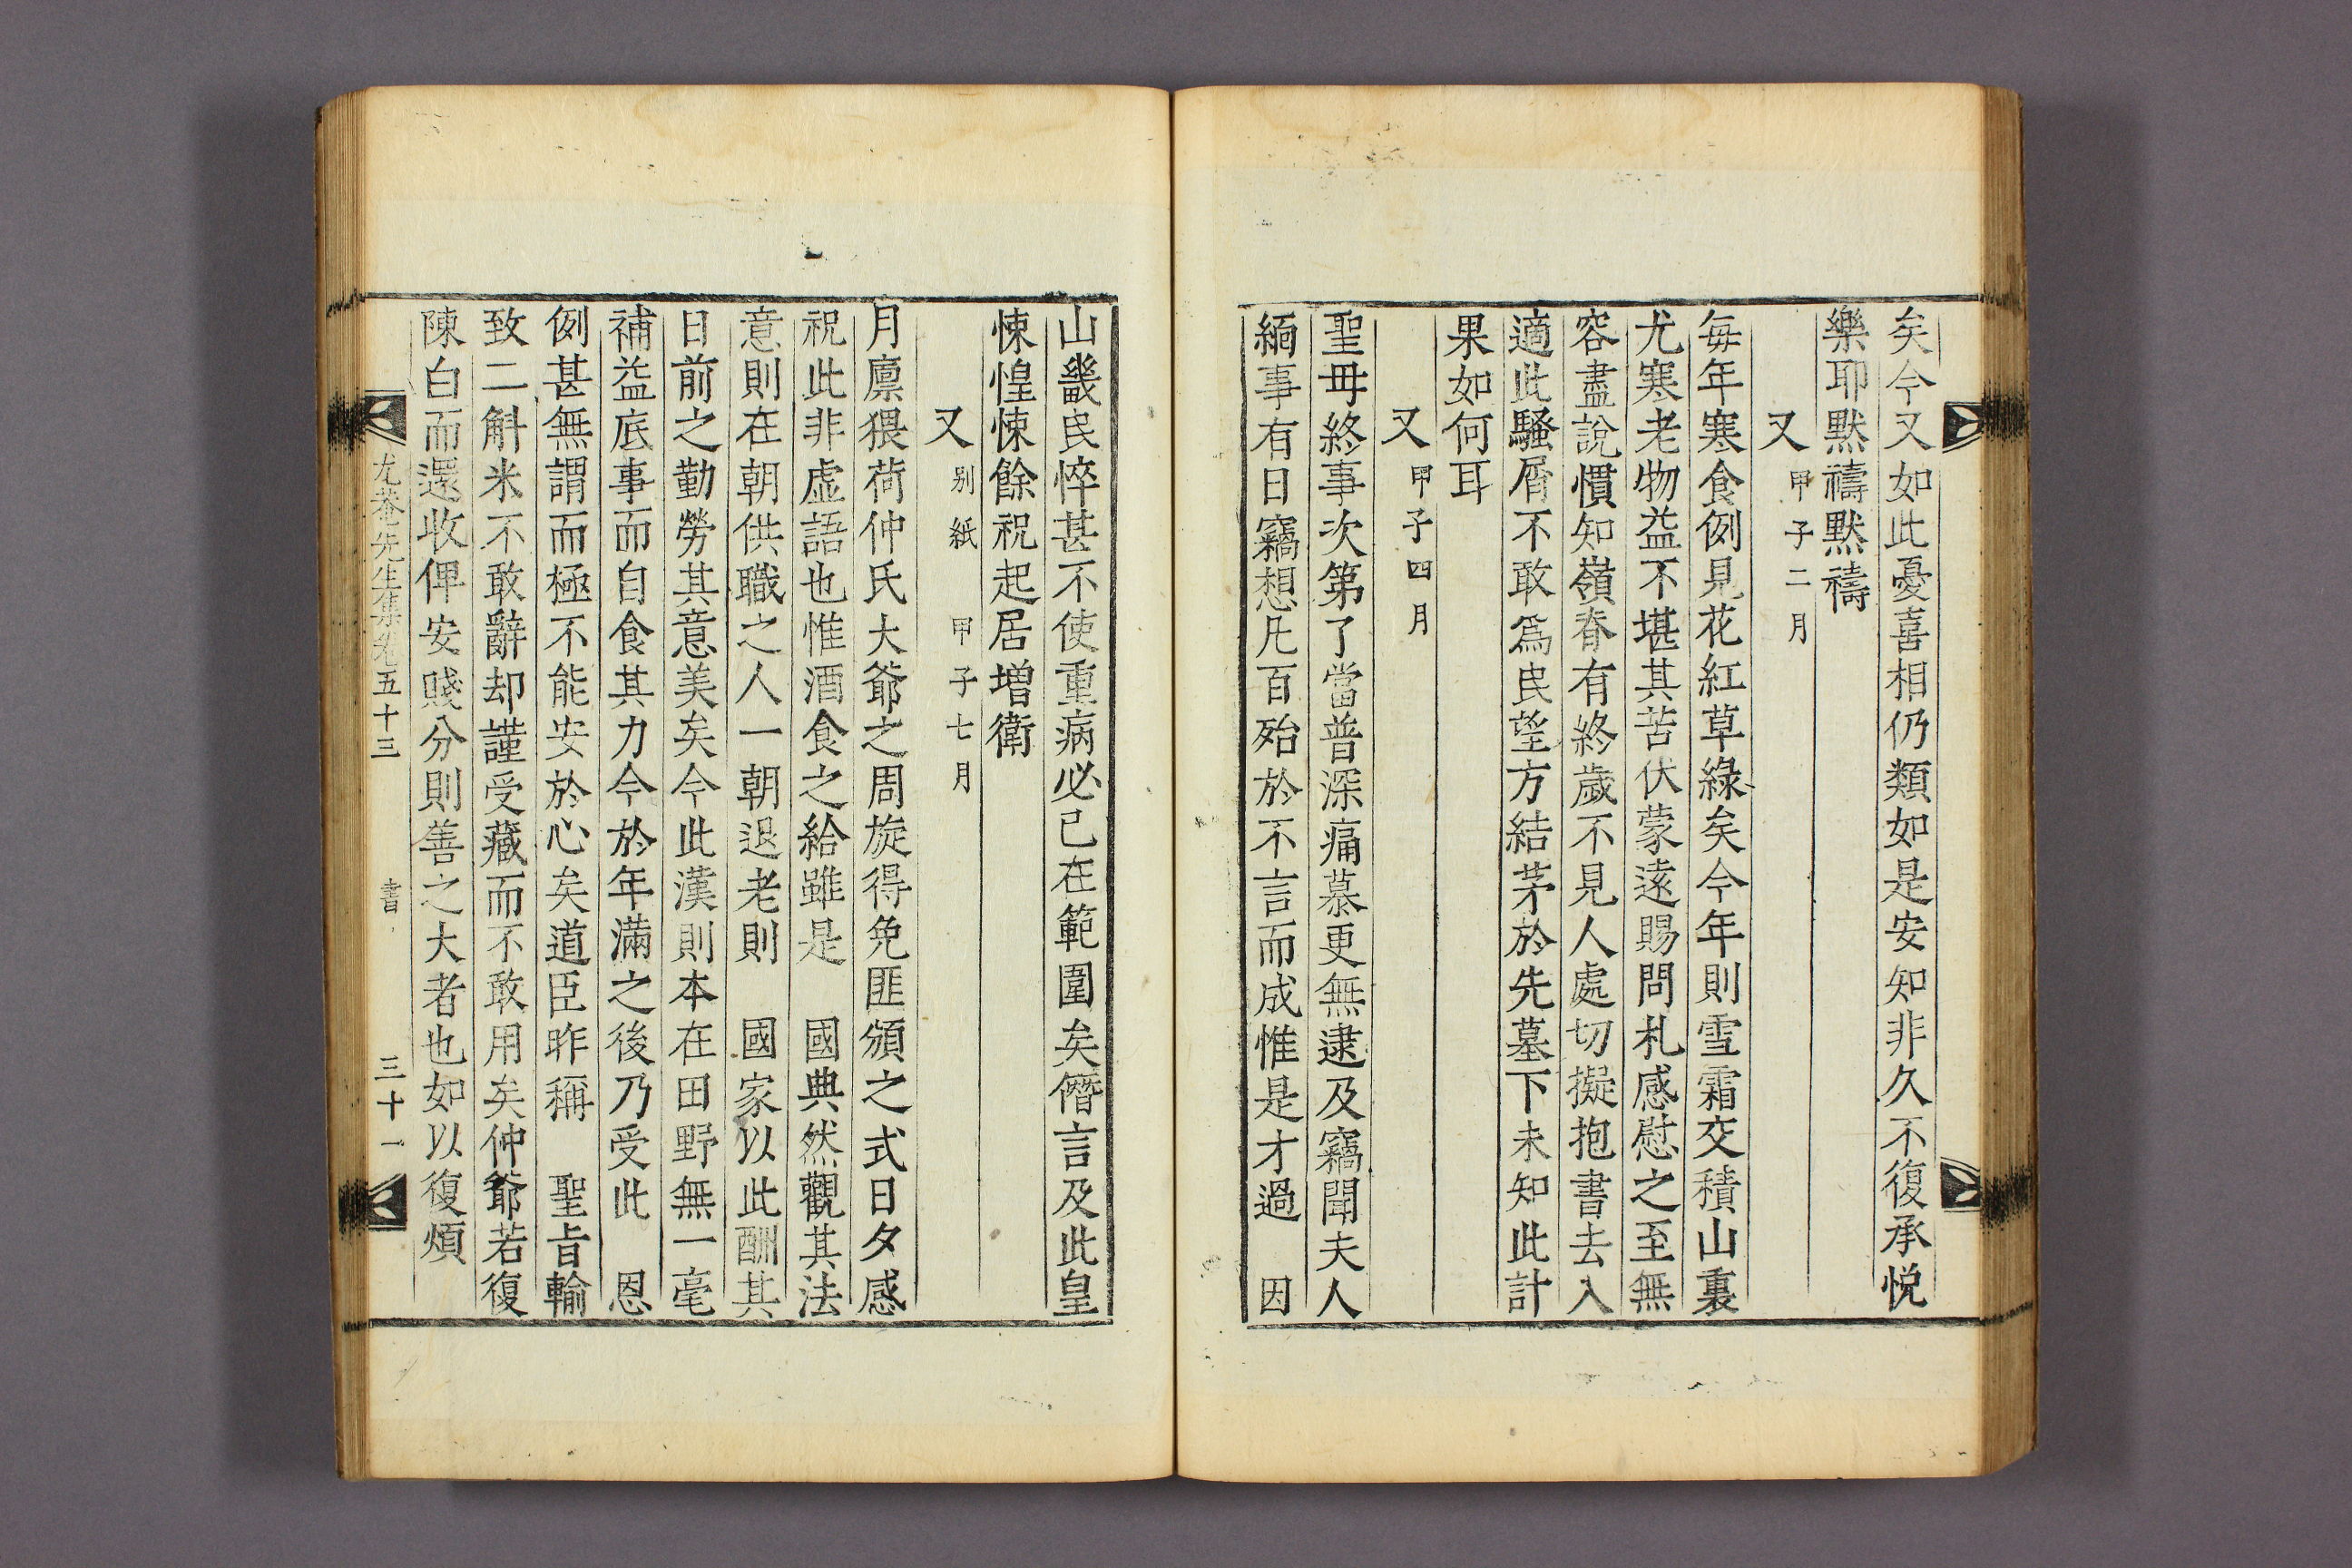 矣今又如此憂喜相仍類如是安知非久不復承悅
樂耶默禱默禱
又甲子二月
每年寒食例見花紅草綠矣今年則雪霜交積山裏
尤寒老物益不堪其苦伏蒙遠賜問札感慰之至無
容盡說慣知嶺脊有終歲不見人處切擬抱書去入
適此騷屑不敢爲民望方結茅於先墓下未知此計
果如何耳
又甲子四月
聖母終事次第了當普深痛慕更無逮及竊聞夫人
緬事有日竊想凡百殆於不言而成惟是才過 因
山畿民悴甚不使重病必已在範圍矣僭言及此皇
悚惶悚餘祝起居增衛
又别紙 甲子七月
月廩猥荷仲氏大爺之周旋得免匪頒之式日夕感
祝此非虛語也惟酒食之給雖是 國典然觀其法
意則在朝供職之人一朝退老則 國家以此酬其
日前之勤勞其意美矣今此漢則本在田野無一毫
補益底事而自食其力今於年滿之後乃受此 恩
例甚無謂而極不能安於心矣道臣昨稱 聖旨輸
致二斛米不敢辭却謹受藏而不敢用矣仲爺若復
陳白而還收俾安賤分則善之大者也如以復煩
尤菴先生集卷五十三 書 三十一